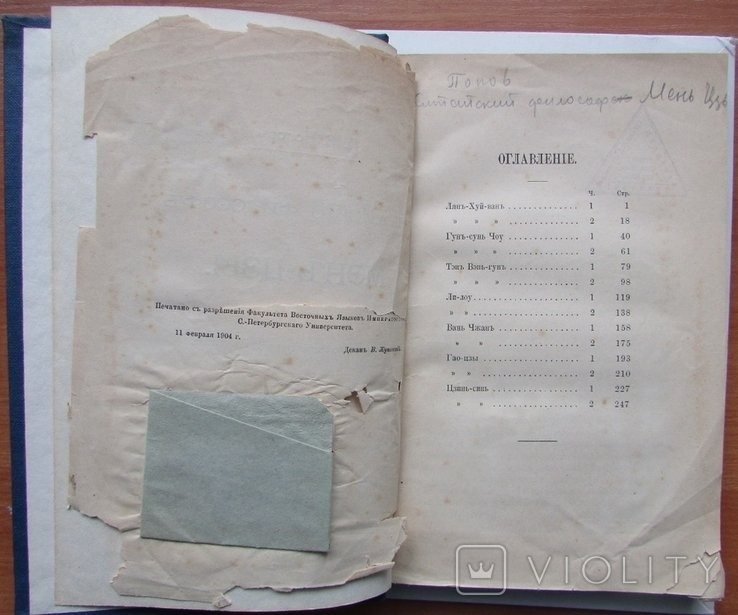 Печатано съ разрѣшенія Факультета Восточныхъ Языковъ
С.-Петербургскаго Университета.
11 февраля 1904 г.
Деканъ В.
Поповъ
Китайский философ Мень Цзы
ОГЛАВЛЕНІЕ.
Ч. Стр.
Лянъ-Хуй-ванъ 1 1
» » » 2 18
Гунъ-сунь Чоу 1 40
» » » 2 61
Тэнъ Вэнь-гунъ 1 79
» » » 2 98
Ли-лоу 1 119
» » 2 138
Вань Чжанъ 1 158
» » 2 175
Гао-цзы 1 193
» » 2 210
Цзинь-синь 1 227
» » 2 247
VIOLITY